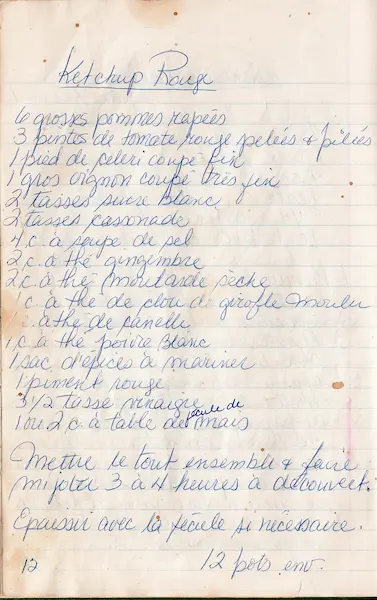 Ketchup Rouge
6 grosses pommes rapées
3 pintes de tomate rouge pelées & pilées
1 pied de céleri coupé fin
1 gros oignon coupé très fin
2 tasses sucre blanc
2 tasses cassonade
4 c. à soupe de sel
2 c. à thé gingimbre
2 c. à thé moutarde sèche
1 c. à thé de clou de girofle moulu
c. à thé de canelle
1 c. à thé poivre blanc
1 sac d'épices à mariner
1 piment rouge
3 1/2 tasse vinaigre
1 ou 2 c. à table de fécule de maïs
Mettre le tout ensemble & faire
mijoter 3 à 4 heures à découvert.
Epaissir avec la fécule si nécessaire.
12 12 pots env.